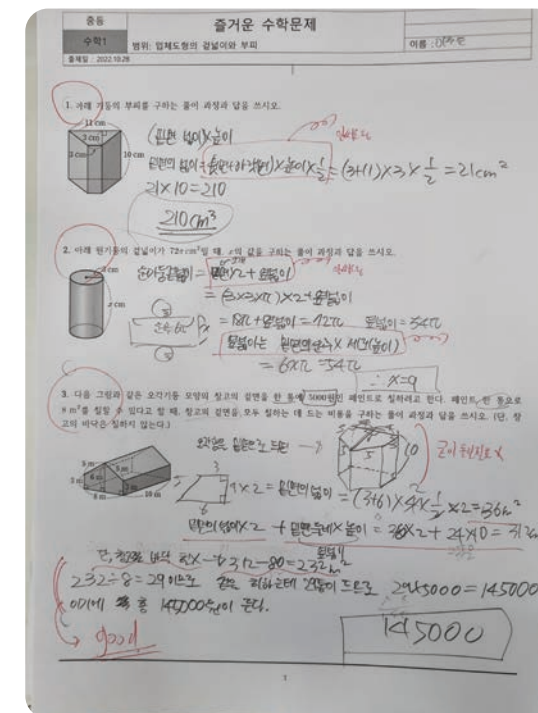 중등
수학1
즐거운 수학문제
범위: 입체도형의 겉넓이와 부피
이름 :
출제일 : 2022.10.28
1. 아래 기둥의 부피를 구하는 풀이 과정과 답을 쓰시오.
11 cm
3 cm
3 cm
10 cm
(밑면 넓이)×높이
밑면의 넓이=(윗변+아랫변)×높이×1/2=(3+11)×3×1/2=21cm²
21×10=210
210cm³
2. 아래 원기둥의 겉넓이가 72π cm²일 때, x의 값을 구하는 풀이 과정과 답을 쓰시오.
3 cm
x cm
=밑면×2+옆넓이
=(3×3×π)×2+옆넓이
=18π+옆넓이=72π 옆넓이=54π
옆넓이는 밑면의 ×(높이)
=6xπ=54π
∴ x=9
3. 다음 그림과 같은 오각기둥 모양의 창고의 겉면을 한 통에 5000원인 페인트로 칠하려고 한다. 페인트 한 통으로
8 m²를 칠할 수 있다고 할 때, 창고의 겉면을 모두 칠하는 데 드는 비용을 구하는 풀이 과정과 답을 쓰시오. (단, 창
고의 바닥은 칠하지 않는다.)
5 m
5 m
6 m
3 m
8 m
10 m
3
4
6
×2=밑면의 넓이
=(3+6)×4×1/2×2=36m²
밑면의 넓이×2 + 밑면둘레×높이=36×2+24×10=312
312-80=232m²
232÷8=29이므로 29×5000=145000
총 145000원이 든다.
good
145000